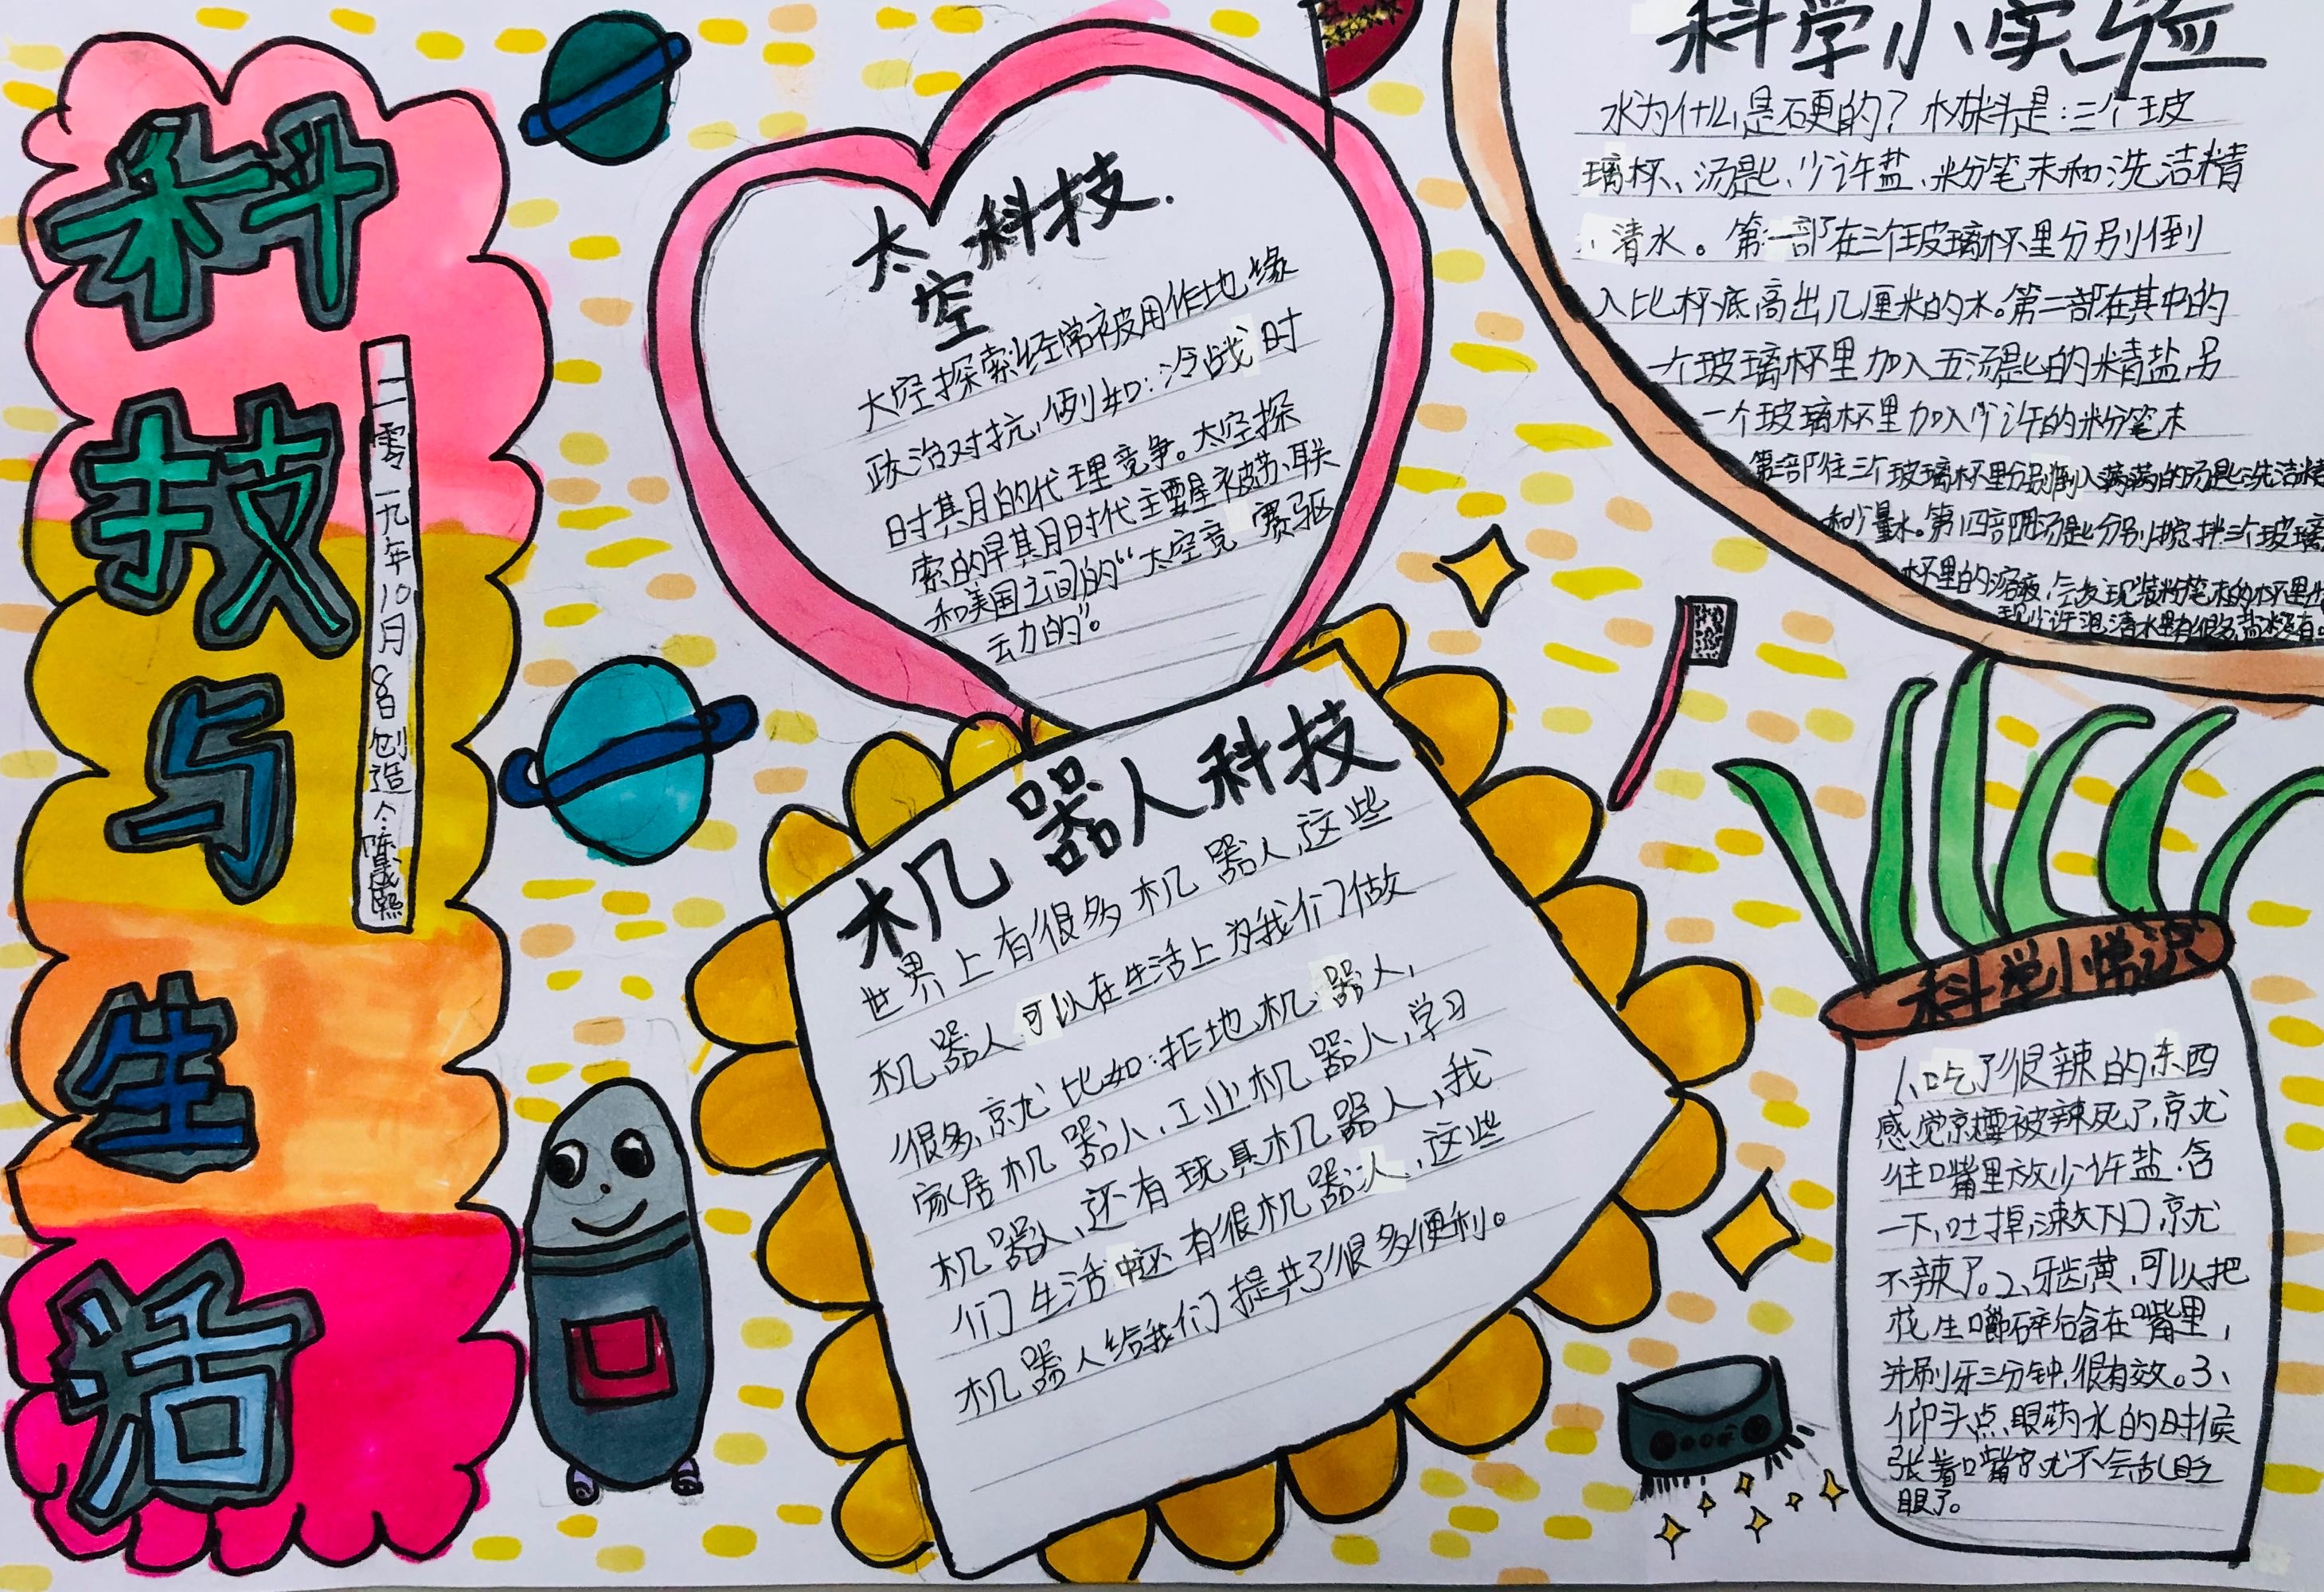 科技与生活
二零一九年10月8日创造人陈晟熙
太空科技.
太空探索经常被用作地缘
政治对抗,例如:冷战时
时其月的代理竞争。太空探
索的早其月时代主要是被苏联
和美国之间的“太空竞赛驱
云力的”。
机器人科技
世界上有很多机器人,这些
机器人可以在生活上为我们做
很多,就比如:拒地机器人,
家居机器人,工业机器人,学习
机器人,还有玩具机器人,我
们生活中还有很机器人,这些
机器人给我们提共了很多便利。
科学小实验
水为什么是硬的?材料是:三个玻
璃杯、汤匙、少许盐、粉笔末和洗洁精
、清水。第一部在三个玻璃杯里分别倒
入比杯底高出几厘米的木。第二部在其中的
一个玻璃杯里加入五汤匙的精盐另
一个玻璃杯里加入少许的粉笔末
第三部往三个玻璃杯里分别倒入满满的汤匙洗洁精
和少量水。第四部用汤匙分别搅拌三个玻璃
杯里的溶液,会发现装粉笔末的杯里出
现少许泡,清水里有很多盐水没有。
科学小常识
1、吃了很辣的东西
感觉就要被辣死了,就
往口嘴里放少许盐,含
一下,吐掉,漱下口,就
不辣了。2、牙齿黄,可以把
花生嚼碎后含在嘴里,
并刷牙三分钟,很有效。3、
仰头点眼药水的时候
张着口嘴就不会乱眨
眼了。